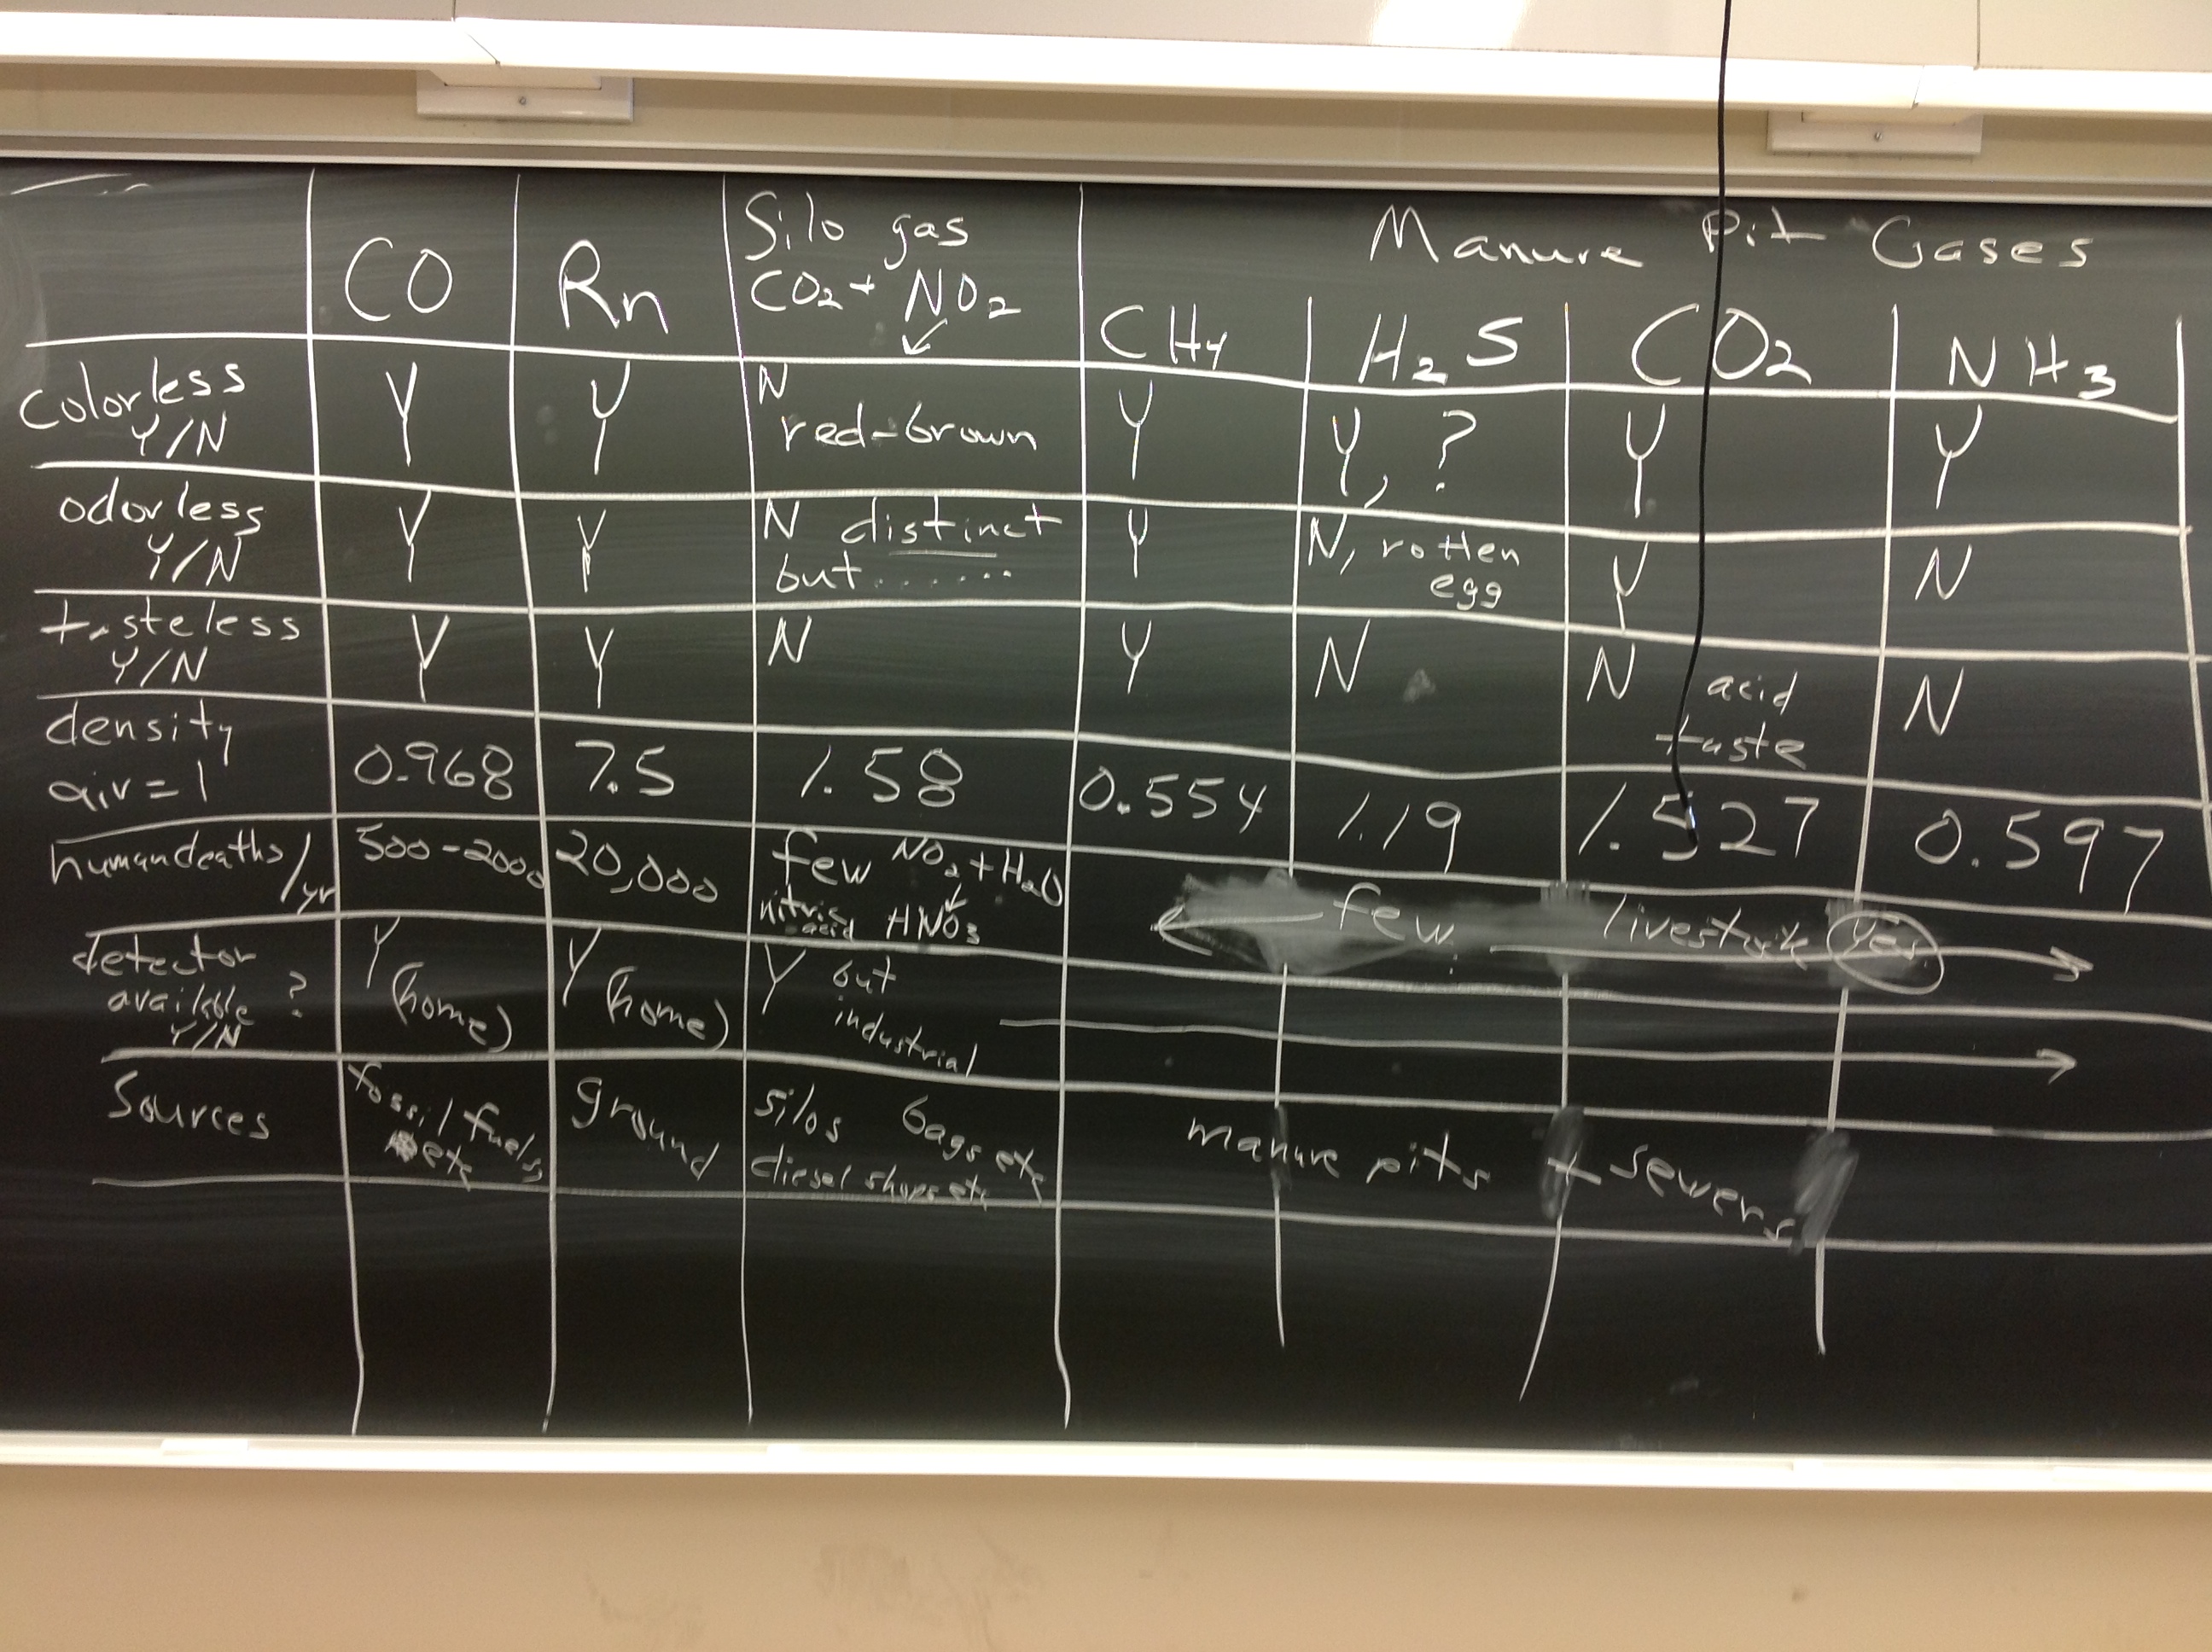 Silo gas
Manure Pit Gases
CO Rn CO2 + NO2
CH4 H2S CO2 NH3
Colorless Y Y N Y Y, ? Y Y
Y/N red-brown
odorless Y Y N distinct Y N, rotten Y N
Y/N but....... egg
tasteless Y Y N Y N N acid N
Y/N taste
density
air = 1 0.968 7.5 1.58 0.554 1.19 1.527 0.597
human deaths/yr 500-2000 20,000 few NO2 + H2O
nitric acid HNO3
few livestock yes
detector Y Y Y but
available ? (home) (home) industrial
Y/N
Sources fossil fuels ground silos bags etc
etc diesel shops etc
manure pits + sewers